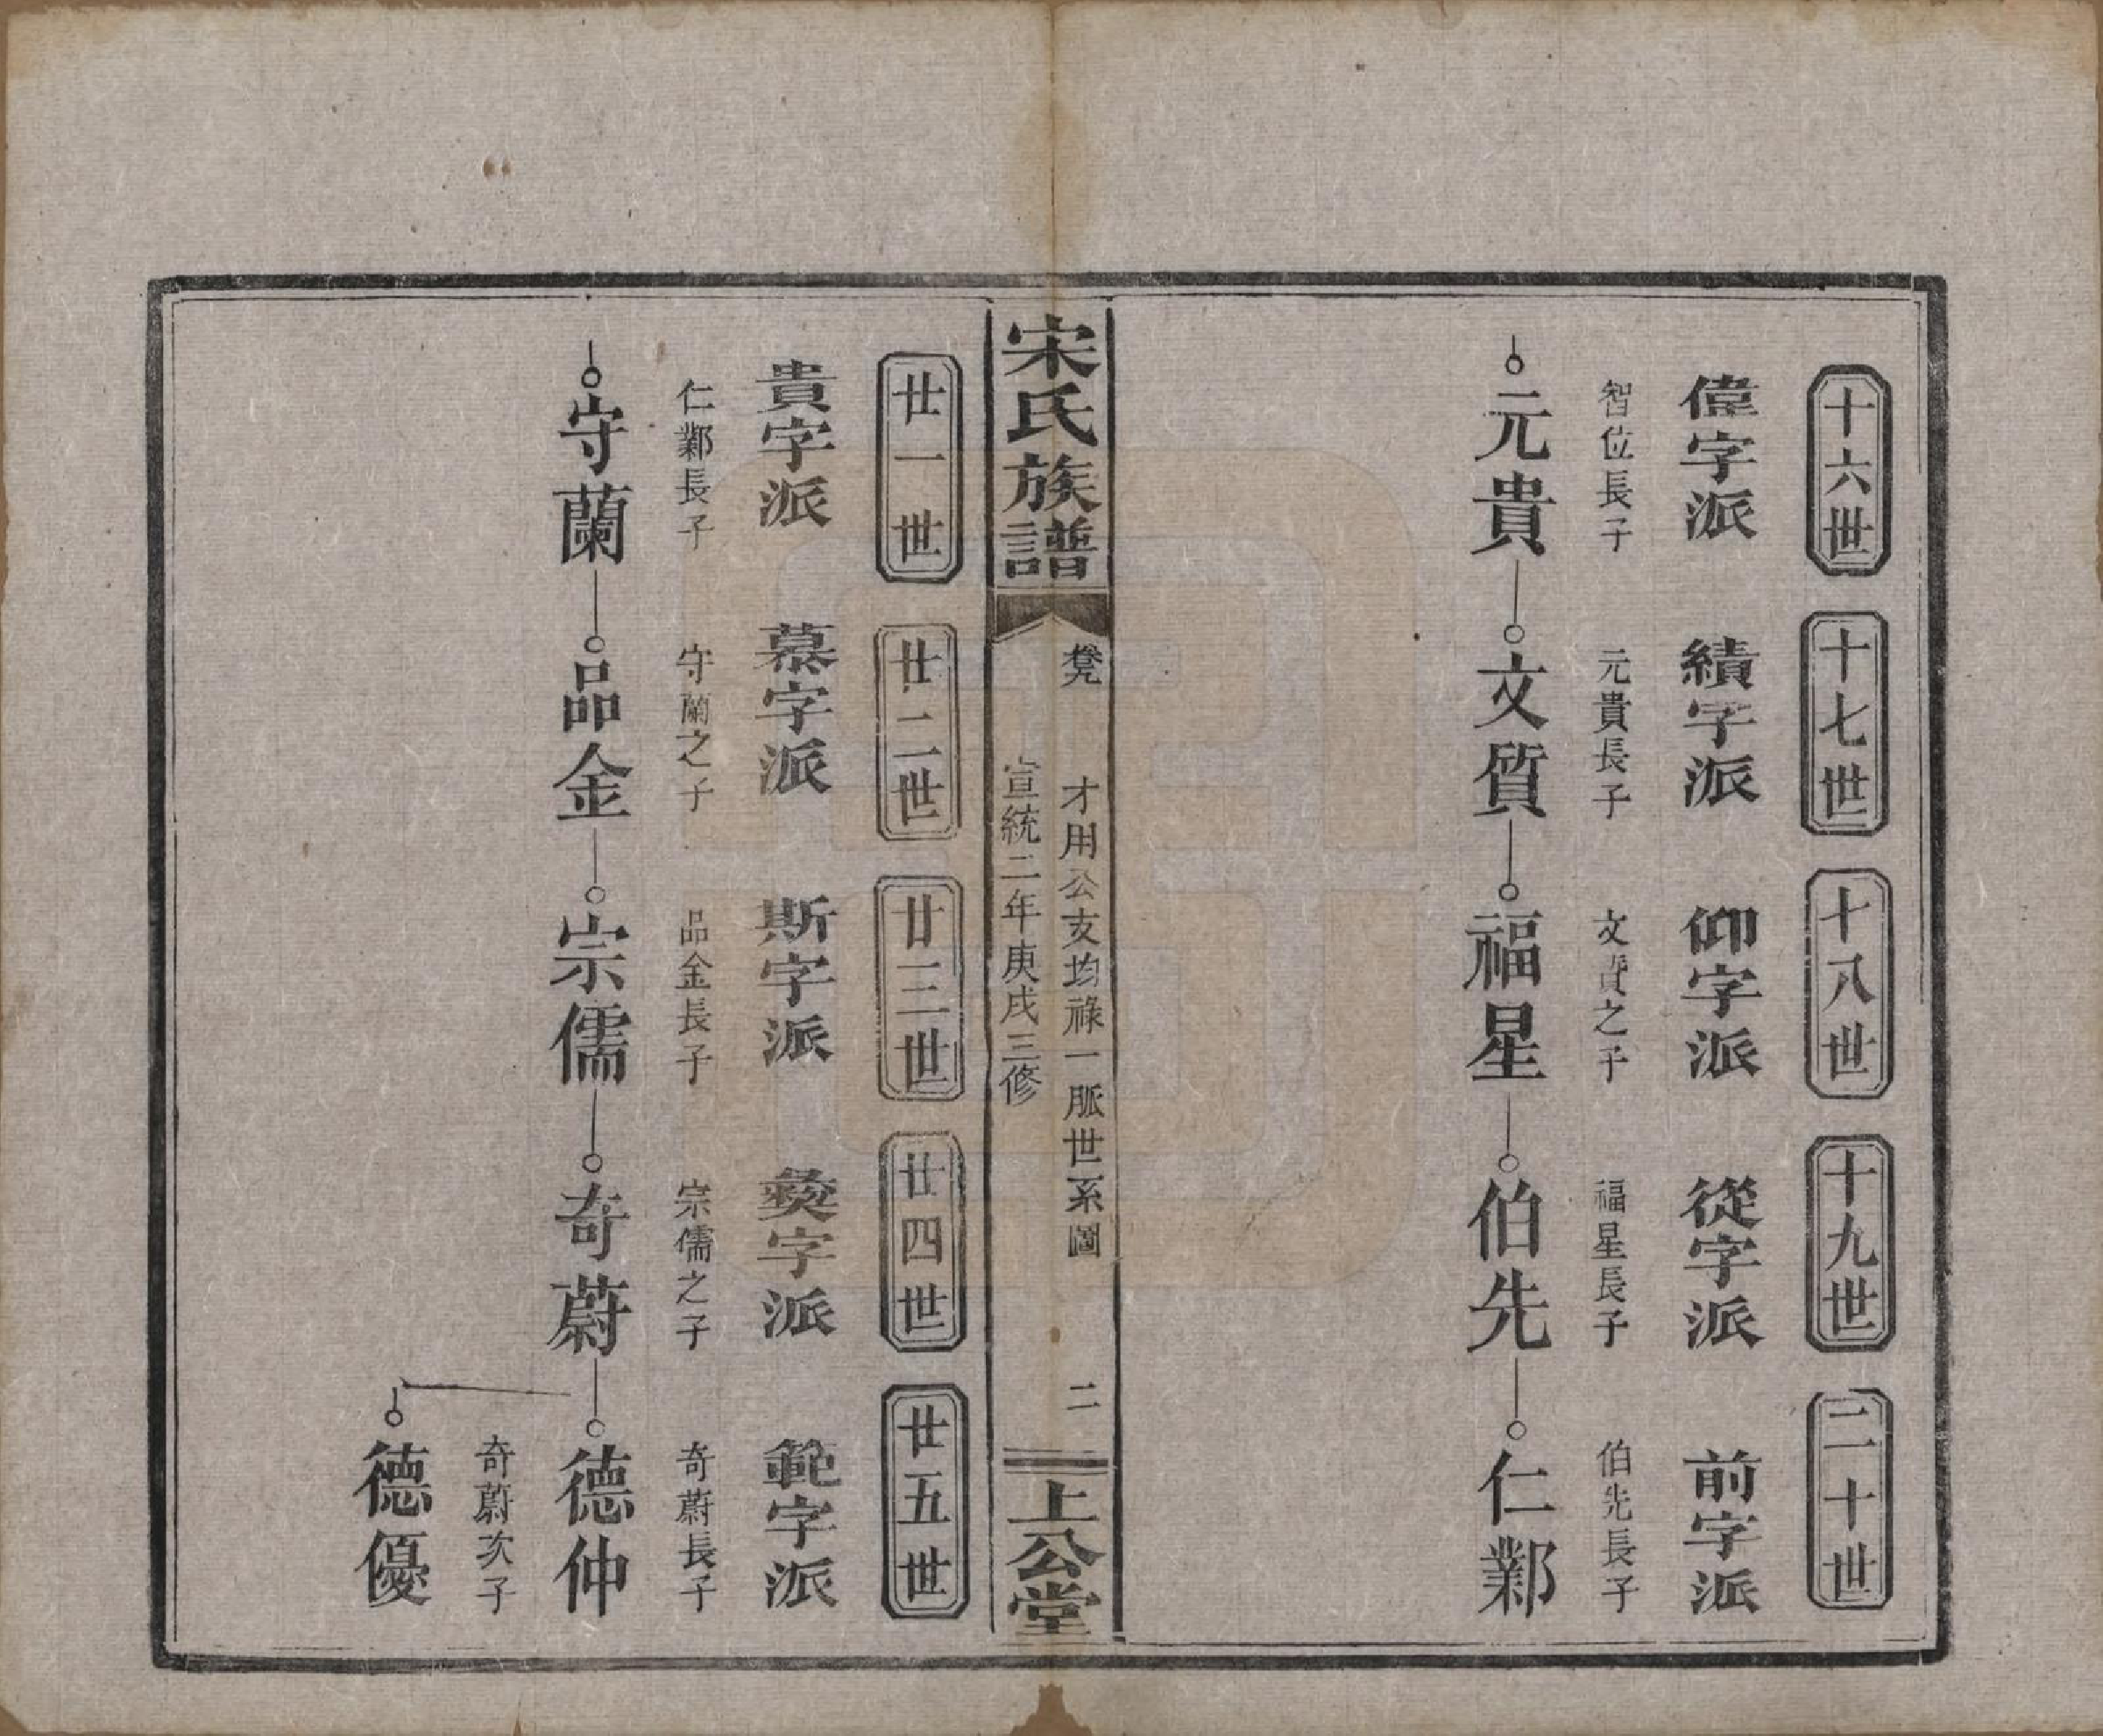 十六世
十七世
十八世
十九世
二十世
偉字派
績字派
仰字派
從字派
前字派
智位長子
元貴長子
文質之子
福星長子
伯先長子
元貴
文質
福星
伯先
仁鄴
宋氏族譜
卷九
才用公支均祿一脈世系圖
二
宣統二年庚戌三修
上公堂
廿一世
廿二世
廿三世
廿四世
廿五世
貴字派
慕字派
斯字派
燊字派
範字派
仁鄴長子
守蘭之子
品金長子
宗儒之子
奇蔚長子
守蘭
品金
宗儒
奇蔚
德仲
奇蔚次子
德優